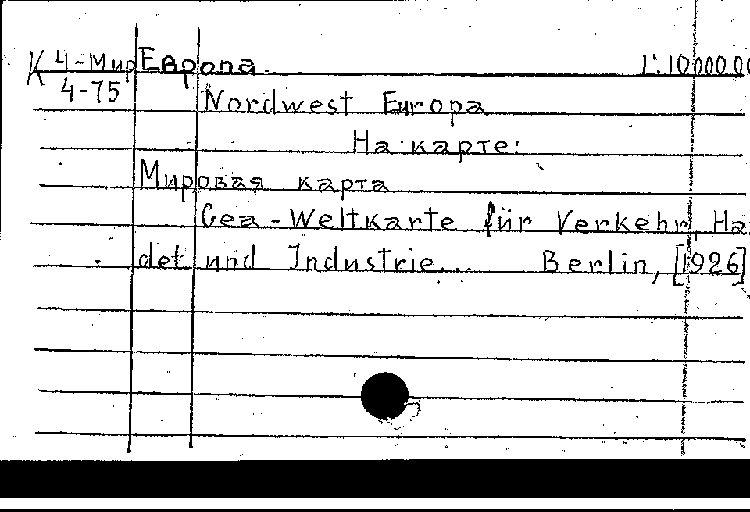 К 4-Мир Европа 1:10000 00
4-75
Nordwest Europa
На карте:
Мировая карта
Gea-Weltkarte für Verkehr, Ha
del und Industrie... Berlin, [1926]